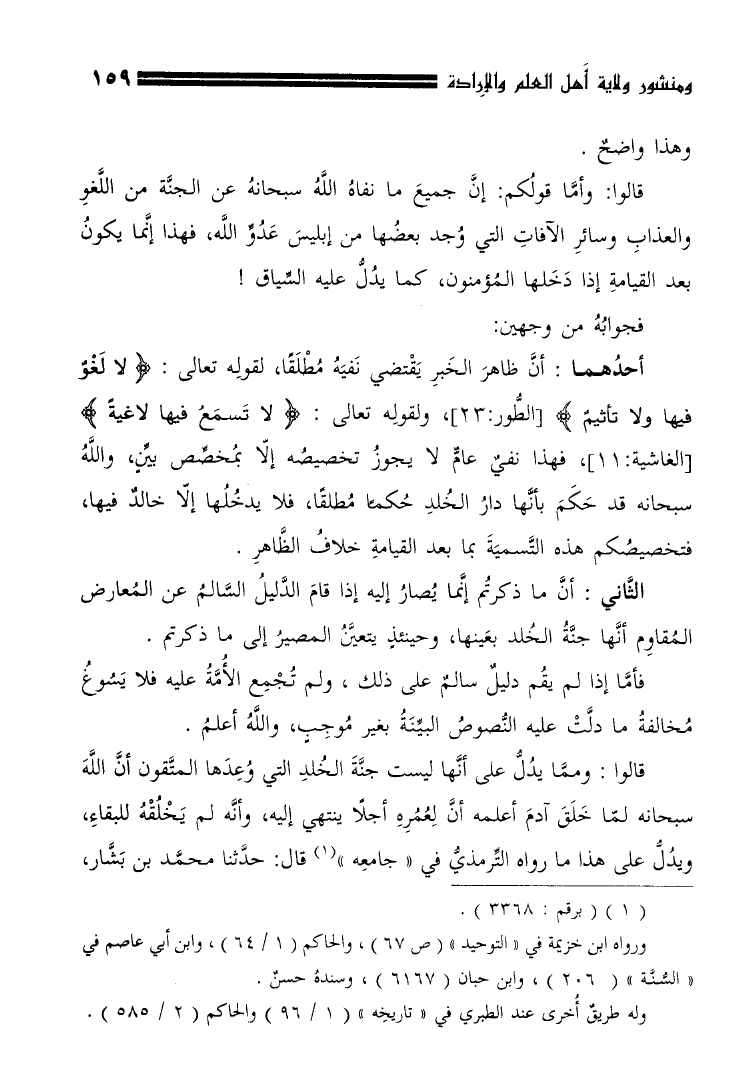 ومنشور ولاية أهل العلم والإرادة ١٥٩
وهذا واضحٌ .
قالوا: وأمَّا قولُكم: إنَّ جميعَ ما نفاهُ اللَّهُ سبحانهُ عن الجنَّة من اللَّغوِ
والعذابِ وسائرِ الآفاتِ التي وُجد بعضُها من إبليسَ عَدُوِّ اللَّه، فهذا إنَّما يكونُ
بعد القيامةِ إذا دَخَلها المُؤمنون، كما يدُلُّ عليه السِّياق !
فجوابُهُ من وجهين:
أحدُهما : أنَّ ظاهرَ الخَبرِ يَقْتضي نَفيَهُ مُطْلَقًا، لقولِه تعالى : ﴿ لا لَغْوٌ
فيها ولا تأثيمٌ ﴾ [الطُّور:٢٣]، ولقولِه تعالى : ﴿ لا تَسمَعُ فيها لاغيةً ﴾
[الغاشية:١١]، فهذا نفيٌ عامٌّ لا يجوزُ تخصيصُه إلّا بمُخصِّص بيِّنٍ، واللَّهُ
سبحانه قد حَكَمَ بأنَّها دارُ الخُلدِ حُكمًا مُطلقًا، فلا يدخُلُها إلّا خالدٌ فيها،
فتخصيصُكم هذه التَّسميَةَ بما بعد القيامةِ خلافُ الظَّاهرِ .
الثَّاني : أنَّ ما ذكرتُم إنَّما يُصارُ إليه إذا قامَ الدَّليلُ السَّالمُ عن المُعارض
المقاوِم أنَّها جنَّةُ الخُلد بعَينها، وحينئذٍ يتعيَّنُ المصيرُ إلى ما ذكرتم .
فأمَّا إذا لم يقُم دليلٌ سالمٌ على ذلك ، ولم تُجْمِع الأُمَّةُ عليه فلا يَسُوغُ
مُخالفةُ ما دلَّتْ عليه النُّصوصُ البيِّنَةُ بغير مُوجِبٍ، واللَّهُ أعلمُ .
قالوا : وممَّا يدُلُّ على أنَّها ليست جنَّةَ الخُلدِ التي وُعِدَها المتَّقون أنَّ اللَّهَ
سبحانه لمّا خَلَقَ آدمَ أعلمه أنَّ لِعُمُرِهِ أجلًا ينتهي إليه، وأنَّه لم يَخْلُقْهُ للبقاءِ،
ويدُلُّ على هذا ما رواه التِّرمذيُّ في « جامعِه »(١) قال: حدَّثنا محمَّد بن بَشَّار،
( ١ ) ( برقم : ٣٣٦٨ ) .
ورواه ابن خزيمة في « التوحيد » ( ص ٦٧ ) ، والحاكم ( ١ / ٦٤ ) ، وابن أبي عاصم في
« السُّنَّة » ( ٢٠٦ ) ، وابن حبان ( ٦١٦٧ ) ، وسندهُ حسنٌ .
وله طريقٌ أُخرى عند الطبري في « تاريخِه » ( ١ / ٩٦ ) والحاكم ( ٢ / ٥٨٥ ) .